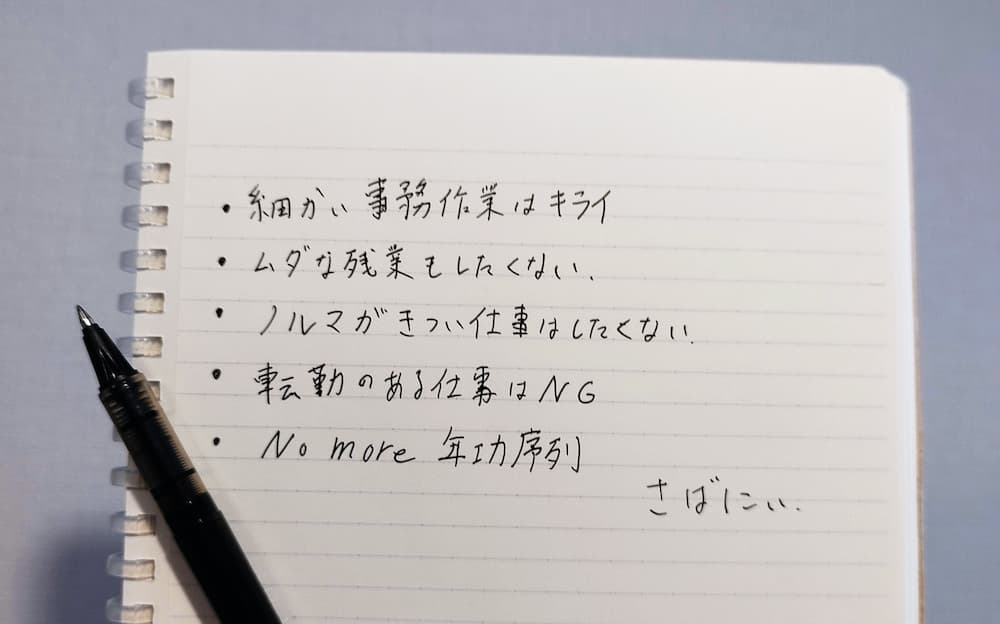 ・細かい事務作業はキライ
・ムダな残業もしたくない.
・ノルマがきつい仕事はしたくない.
・転勤のある仕事はNG
・No more 年功序列
さばにい.